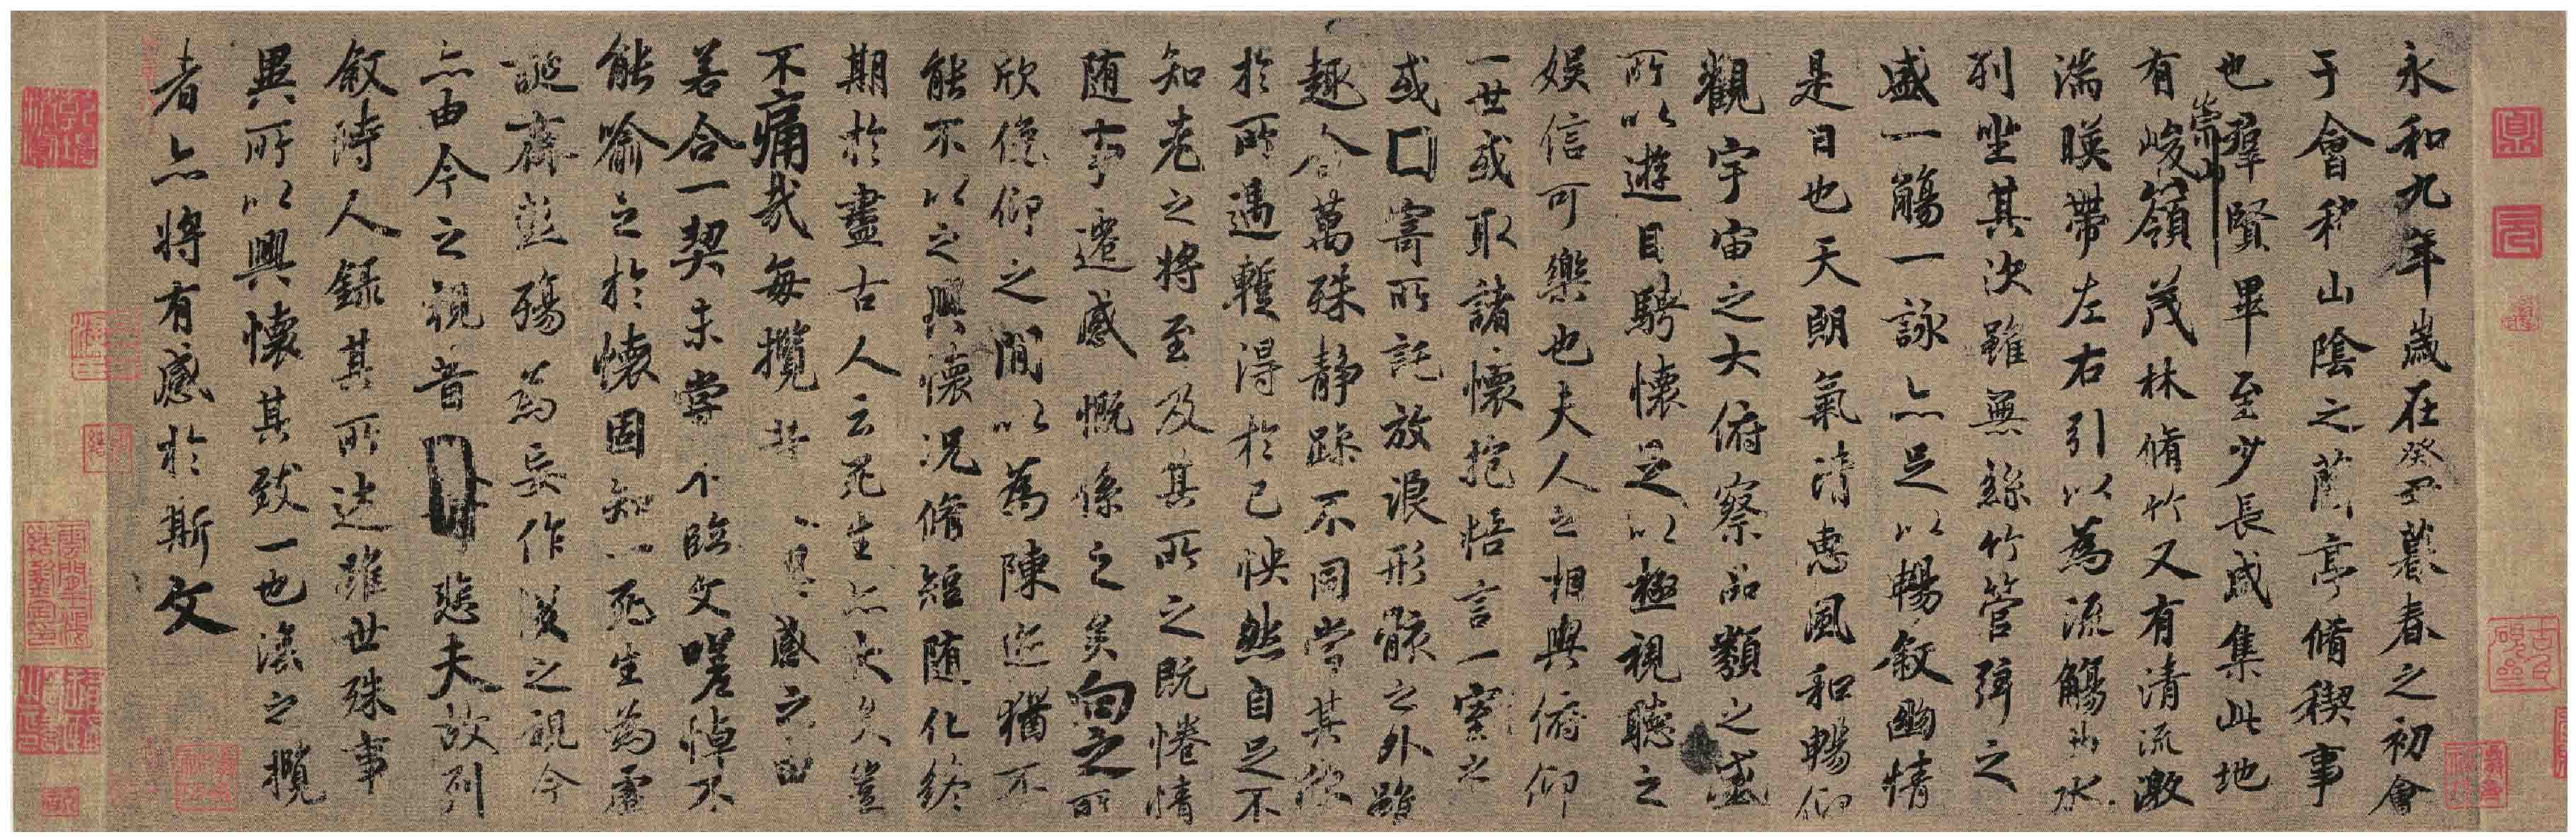 永和九年歲在癸丑暮春之初會
于會稽山陰之蘭亭脩稧事
也羣賢畢至少長咸集此地
有崇山峻嶺茂林脩竹又有清流激
湍暎帶左右引以為流觴水
列坐其次雖無絲竹管弦之
盛一觴一詠亦足以暢敘幽情
是日也天朗氣清惠風和暢仰
觀宇宙之大俯察品類之盛
所以遊目騁懷足以極視聽之
娛信可樂也夫人之相與俯仰
一世或取諸懷抱悟言一室之
或寄所託放浪形骸之外雖
趣舍萬殊靜躁不同當其欣
於所遇蹔得於己怏然自足不
知老之將至及其所之既惓情
随事遷感慨係之矣向之所
欣俛仰之閒以為陳迹猶不
能不以之興懷況脩短随化終
期於盡古人云死生亦大矣豈
不痛哉每攬感之由
若合一契未嘗不臨文嗟悼不
能喻之於懷固知一死生為虛
誕齊彭殤為妄作後之視今
亦由今之視昔悲夫故列
敘時人錄其所述雖世殊事
異所以興懷其致一也後之攬
者亦將有感於斯文